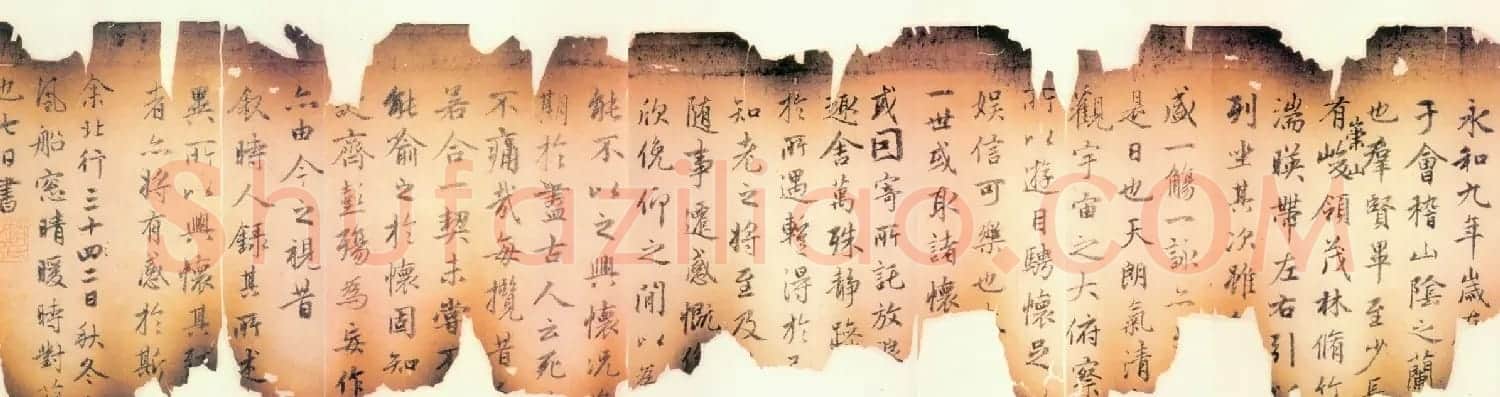 永和九年歲
于會稽山陰之蘭
也羣賢畢至少長
有崇山峻領茂林脩竹
湍暎帶左右引
列坐其次雖
盛一觴一詠亦
是日也天朗氣清
觀宇宙之大俯察
所以遊目騁懷足
娛信可樂也
一世或取諸懷
或因寄所託放浪
趣舍萬殊静躁
於所遇輒得於
知老之將至及
隨事遷感慨係
欣俛仰之閒以為
能不以之興懷況
期於盡古人云死
不痛哉每攬昔
若合一契未嘗不
能喻之於懷固知
故齊彭殤為妄作
亦由今之視昔
敘時人錄其所述
異所以興懷其致
者亦將有感於斯
余北行三十四二日秋冬
風船窓晴暖時對
也七日書
Shufaziliao.COM